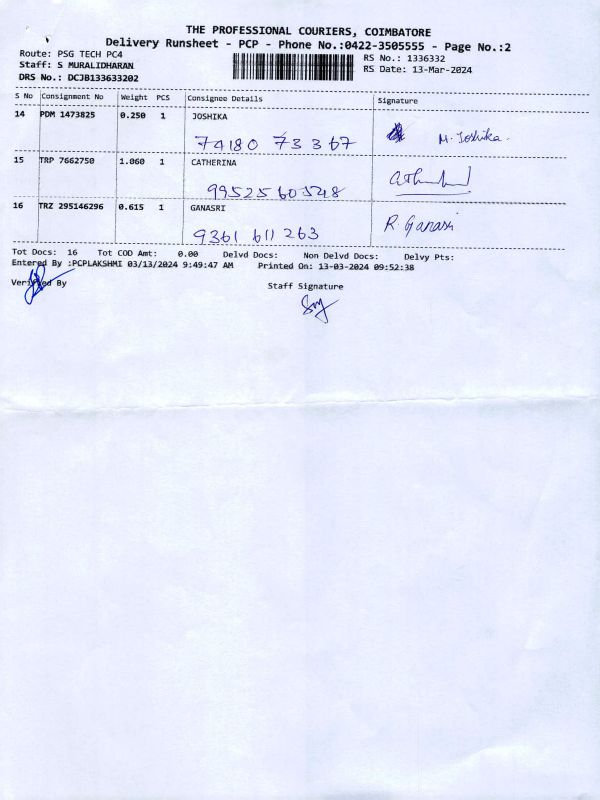 THE PROFESSIONAL COURIERS, COIMBATORE
Delivery Runsheet - PCP - Phone No.:0422-3505555 - Page No.:2
Route: PSG TECH PC4
RS No.: 1336332
Staff: S MURALIDHARAN
RS Date: 13-Mar-2024
DRS No.: DCJB133633202
S No Consignment No Weight PCS Consignee Details Signature
14 PDM 1473825 0.250 1 JOSHIKA
74180 73367 M. Joshika.
15 TRP 7662750 1.060 1 CATHERINA
9952560548
16 TRZ 295146296 0.615 1 GANASRI
9361 611 263 R. Ganasri
Tot Docs: 16 Tot COD Amt: 0.00 Delvd Docs: Non Delvd Docs: Delvy Pts:
Entered By :PCPLAKSHMI 03/13/2024 9:49:47 AM Printed On: 13-03-2024 09:52:38
Verified By Staff Signature